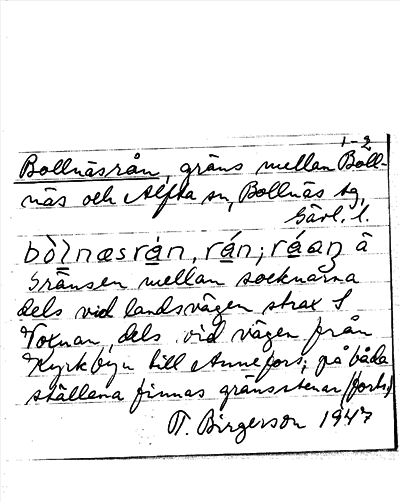 1-2
Bollnäsrån, gräns mellan Boll-
näs och Alfta sn, Bollnäs sg,
Gävl. l.
bòlnæsrán, rán; ráaṇ â
Gränsen mellan socknarna
dels vid landsvägen strax S
Voxnan, dels vid vägen från
Kyrkbyn till Annefors; på båda
ställena finnas gränsstenar (forts.)
T. Birgerson 1947